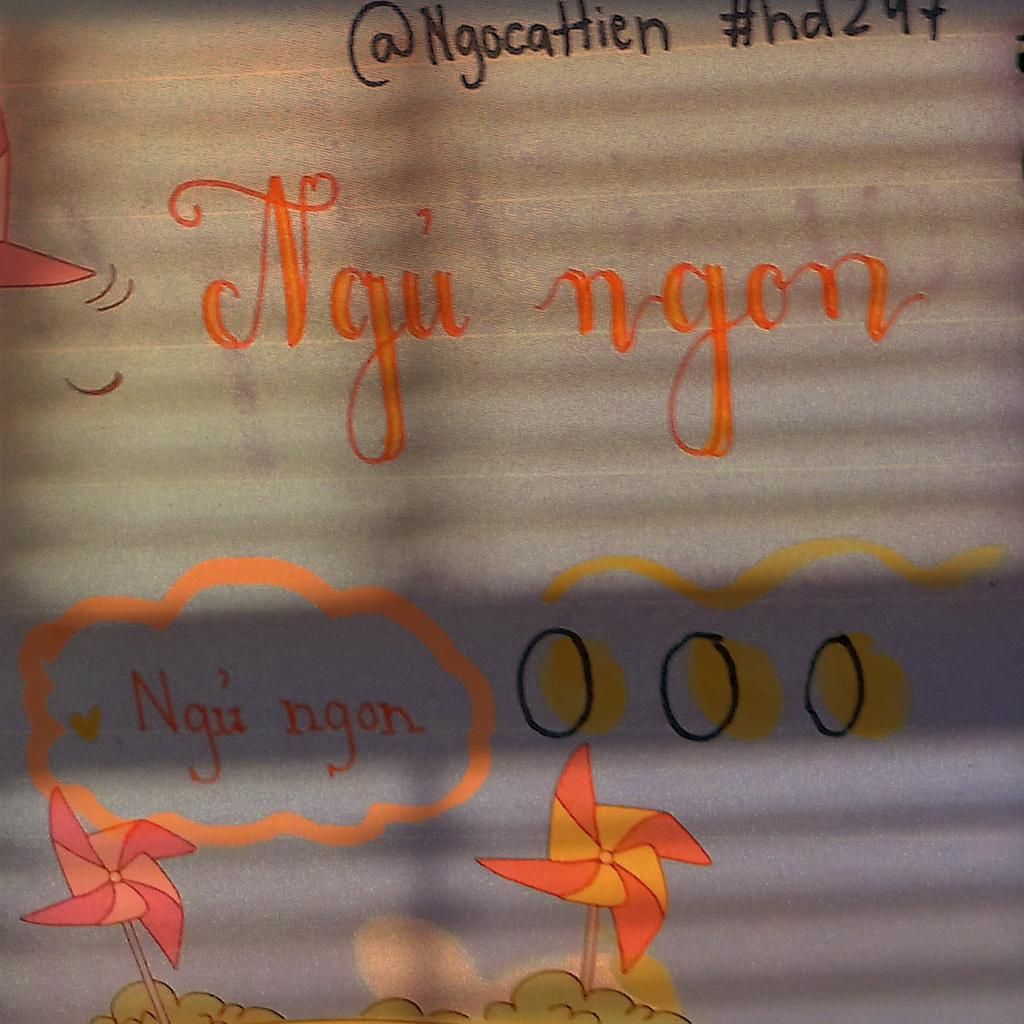 @Ngocattien #hd247
Ngủ ngon
Ngủ ngon
000